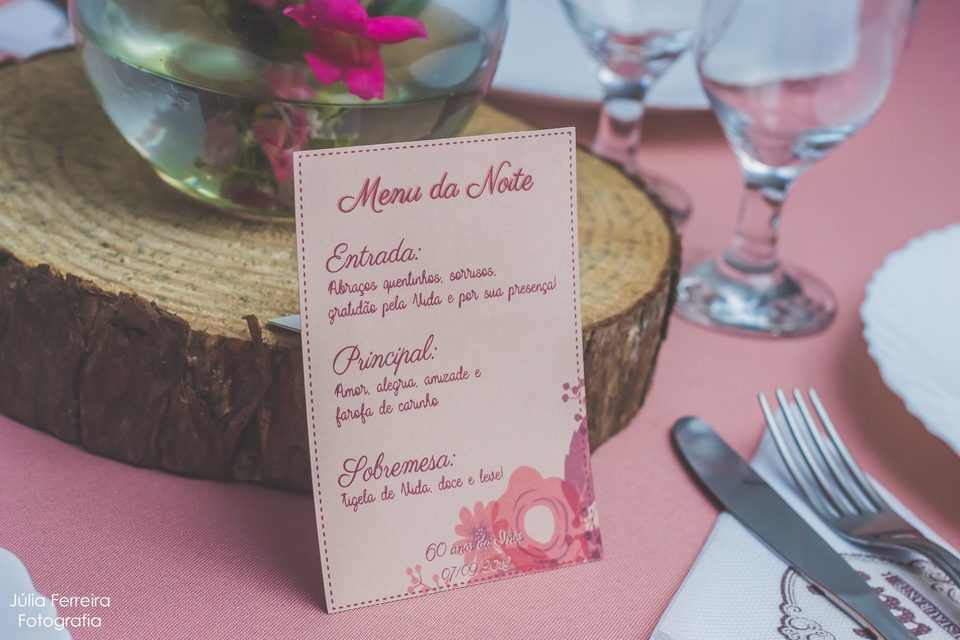 Menu da Noite
Entrada:
Abraços quentinhos, sorrisos,
gratidão pela Vida e por sua presença!
Principal:
Amor, alegria, amizade e
farofa de carinho
Sobremesa:
Tigela de Vida, doce e leve!
60 anos da Inês
07/09/2019
Júlia Ferreira
Fotografia